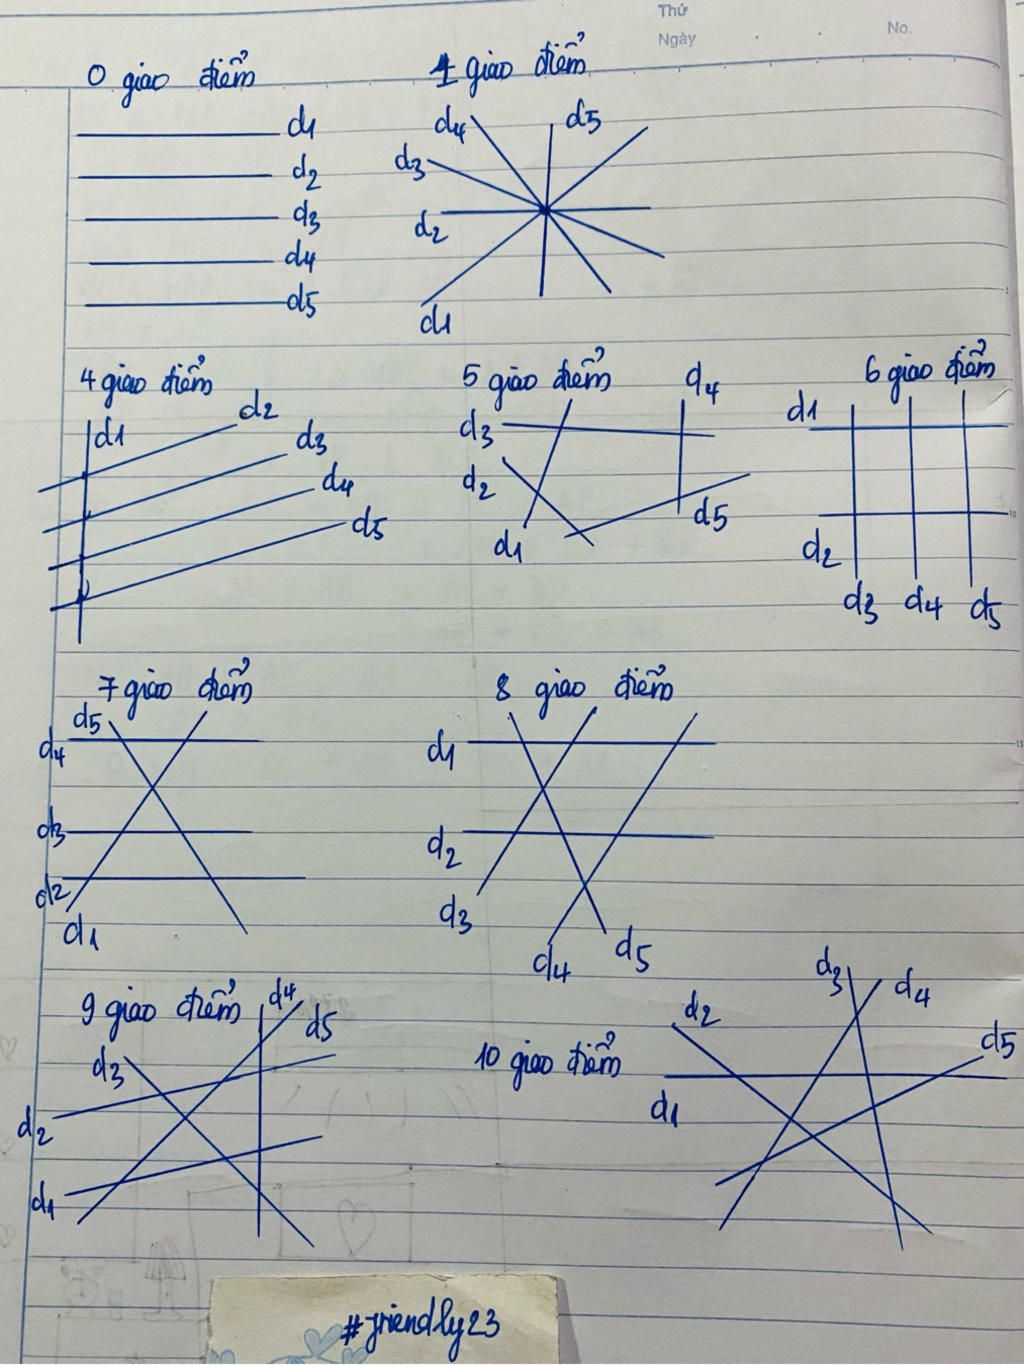 Thứ
Ngày
No.
0 giao điểm
d1
d2
d3
d4
d5
1 giao điểm
d4
d5
d3
d2
d1
4 giao điểm
d1
d2
d3
d4
d5
5 giao điểm
d4
d3
d2
d1
d5
6 giao điểm
d1
d2
d3 d4 d5
7 giao điểm
d5
d4
d3
d2
d1
8 giao điểm
d1
d2
d3
d4
d5
9 giao điểm
d4
d5
d3
d2
d1
10 giao điểm
d3
d4
d2
d5
d1
#friendly23